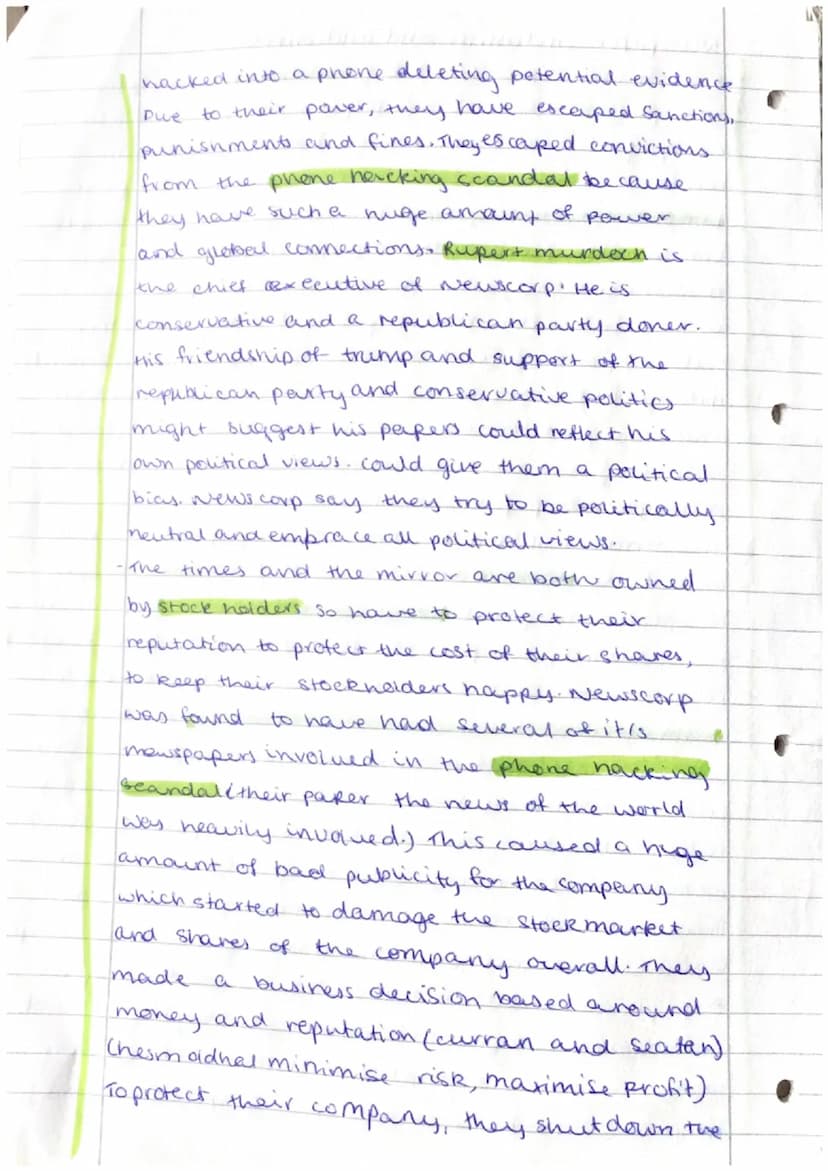 hacked into a phone deleting potential evidence
Due to their power, they have escaped sanctions,
punishments and fines. They escaped convictions
from the phone hacking scandal because
they have such a huge amount of power
and global connections. Rupert murdoch is
the chief executive of Newscorp. He is
conservative and a republican party doner.
His friendship of trump and support of the
republican party and conservative politics
might suggest his papers could reflect his
own political views. could give them a political
bias. Newscorp say they try to be politically
neutral and embrace all political views.
- The times and the mirror are both owned
by stock holders so have to protect their
reputation to protect the cost of their shares,
to keep their stockholders happy. Newscorp
was found to have had several of it's
newspapers involved in the phone hacking
scandal (their paper the news of the world
was heavily involved.) This caused a huge
amount of bad publicity for the company
which started to damage the stockmarket
and shares of the company overall. They
made a business decision based around
money and reputation (curran and seatan)
(hesmondhal minimise risk, maximise profit)
To protect their company, they shut down the